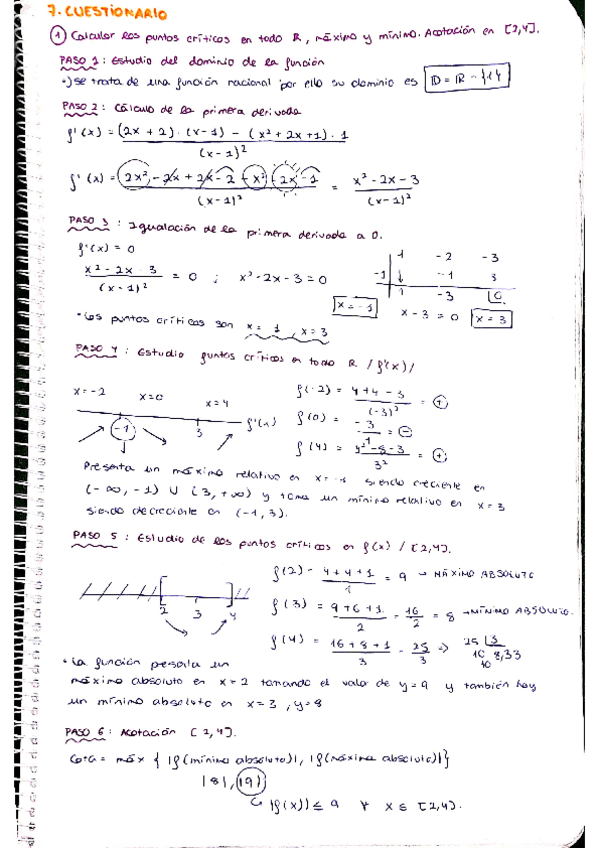 7. CUESTIONARIO
① Calcular los puntos críticos en todo R, máximo y mínimo. Acotación en [2,4].
PASO 1: Estudio del dominio de la función
·) Se trata de una función racional por ello su dominio es D = R - {1}
PASO 2: Cálculo de la primera derivada
f'(x) = (2x + 2)·(x-1) - (x² + 2x + 1)·1 / (x-1)²
f'(x) = 2x² - 2x + 2x - 2 - x² - 2x - 1 / (x-1)² = x² - 2x - 3 / (x-1)²
PASO 3: Igualación de la primera derivada a 0.
f'(x) = 0
x² - 2x - 3 / (x-1)² = 0 ; x² - 2x - 3 = 0
1 -2 -3
-1 ↓ -1 3
1 -3 0
x = -1 x - 3 = 0 x = 3
· Los puntos críticos son x = 1, x = 3
PASO 4: Estudio puntos críticos en todo R /f'(x)/
x = -2 x = 0 x = 4
-1 3 f'(x)
f(-2) = 4 + 4 - 3 / (-3)² = +
f(0) = -3 / 1 = -
f(4) = 4² - 8 - 3 / 3² = +
Presenta un máximo relativo en x = -1 siendo creciente en
(-∞, -1) ∪ (3, +∞) y toma un mínimo relativo en x = 3
siendo decreciente en (-1, 3).
PASO 5: Estudio de los puntos críticos en f(x) / [2,4].
2 3 4
f(2) = 4 + 4 + 1 / 1 = 9 → MÁXIMO ABSOLUTO
f(3) = 9 + 6 + 1 / 2 = 16 / 2 = 8 → MÍNIMO ABSOLUTO.
f(4) = 16 + 8 + 1 / 3 = 25 / 3 ⇒ 25 |3
10 8,33
10
· La función presenta un
máximo absoluto en x = 2 tomando el valor de y = 9 y también hay
un mínimo absoluto en x = 3, y = 8
PASO 6: Acotación [2,4].
Cota = máx { |f(mínimo absoluto)|, |f(máximo absoluto)| }
|8|, |9|
↳ |f(x)| ≤ 9 ∀ x ∈ [2,4].